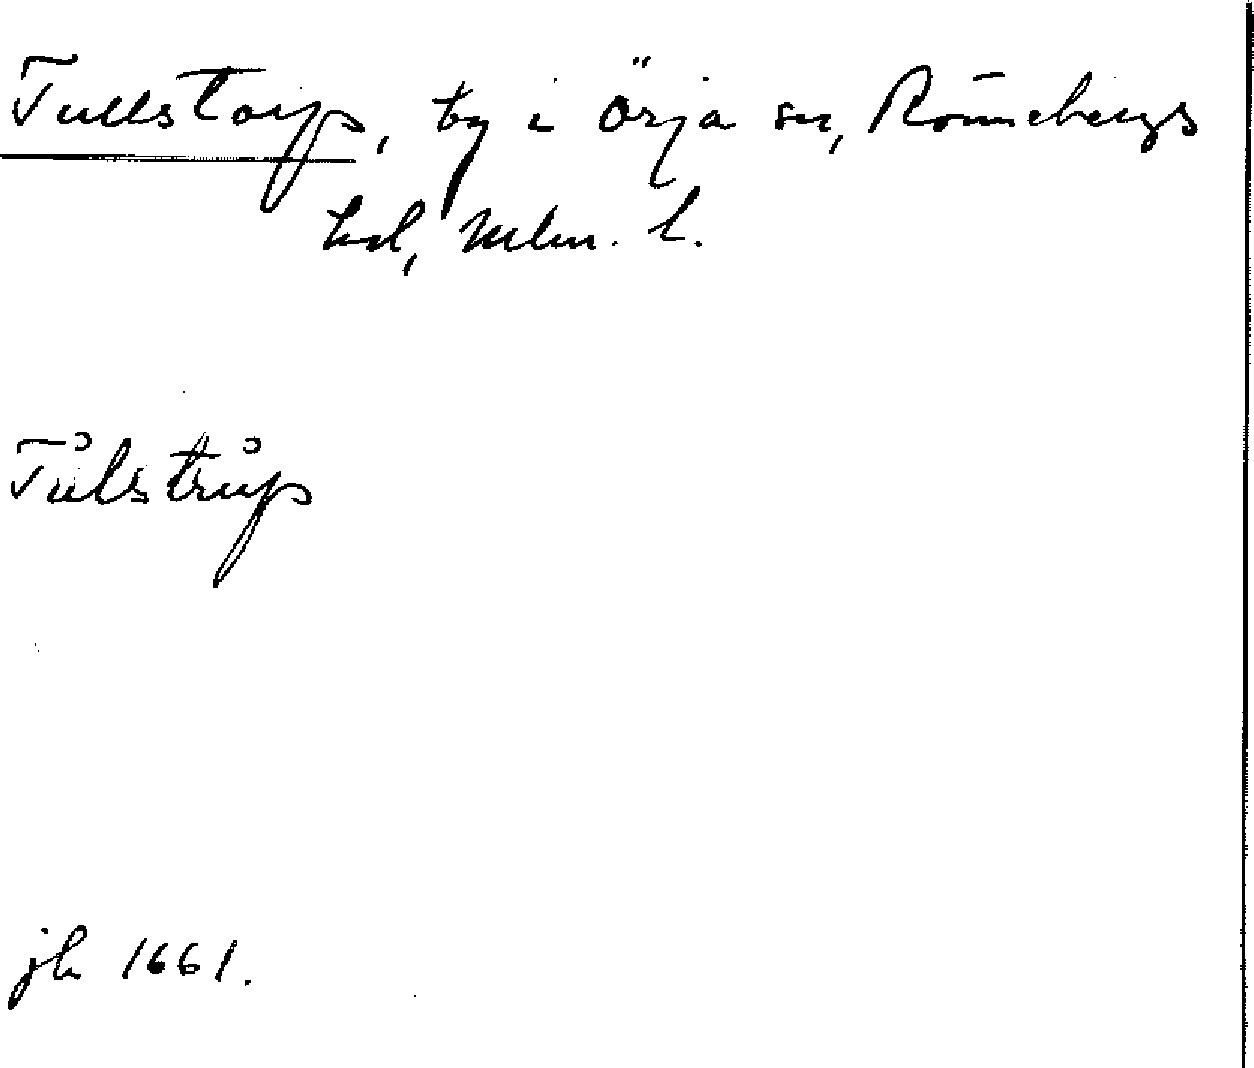 Tullstorp, by i Örja sn, Rönnebergs
hd, Mlm. l.
Tůlstrůp
jb 1661.